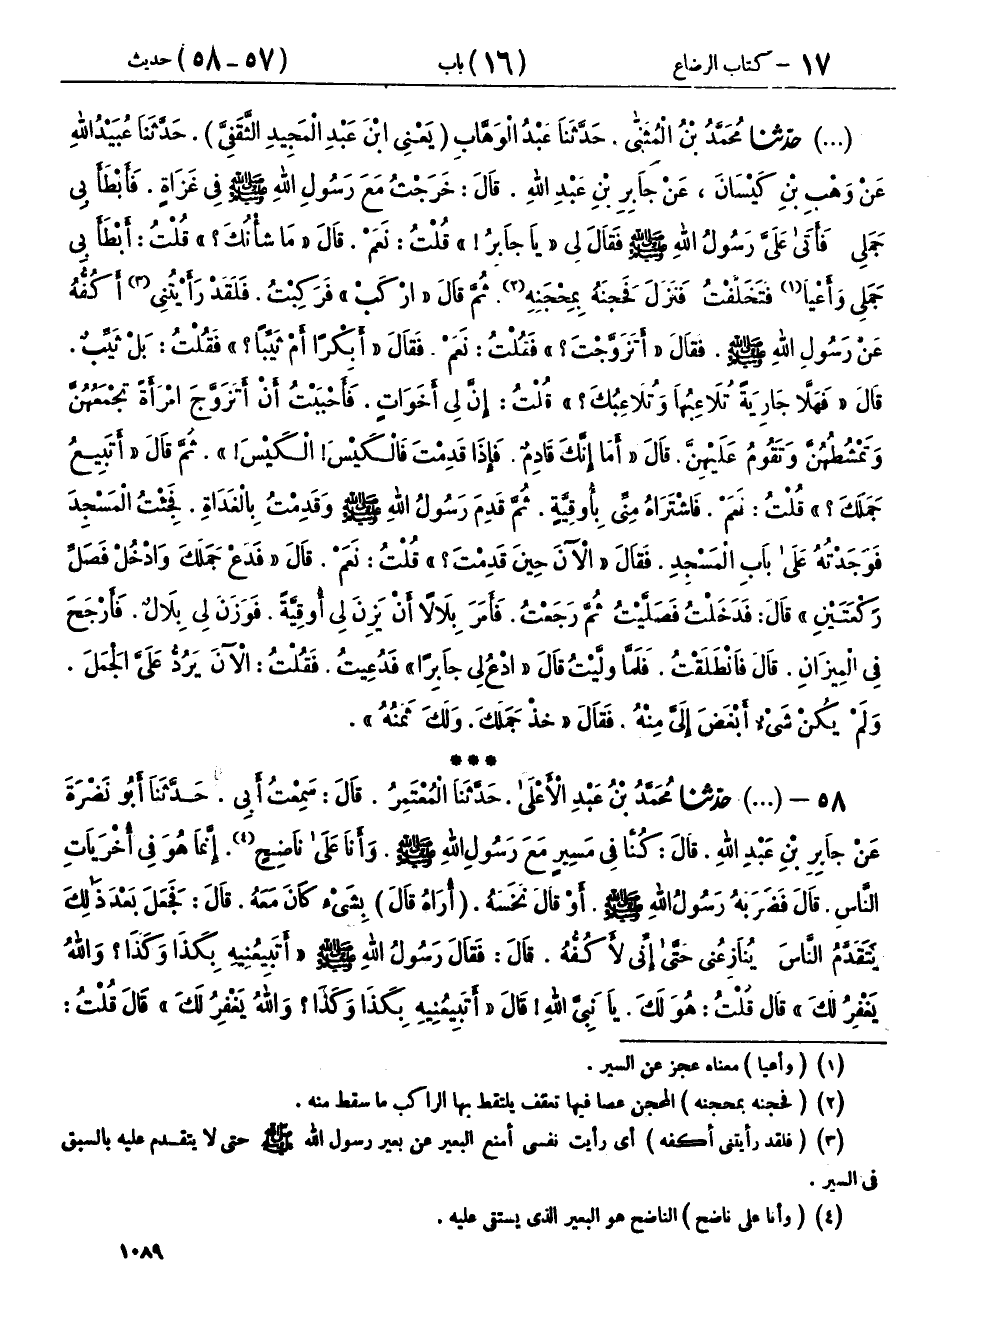 ١٧ - كتاب الرضاع (١٦) باب (٥٧ - ٥٨) حديث
(...) حدثنا مُحَمَّدُ بْنُ الْمُثَنَّىٰ . حَدَّثَنَا عَبْدُ الْوَهَّابِ ( يَعْنِى ابْنَ عَبْدِ الْمَجِيدِ الثَّقَفِىَّ ) . حَدَّثَنَا عُبَيْدُ اللهِ
عَنْ وَهْبِ بْنِ كَيْسَانَ ، عَنْ جَابِرِ بْنِ عَبْدِ اللهِ . قَالَ : خَرَجْتُ مَعَ رَسُولِ اللهِ ﷺ فِى غَزَاةٍ . فَأَبْطَأَ بِى
جَمَلِى فَأَتَىٰ عَلَىَّ رَسُولُ اللهِ ﷺ فَقَالَ لِى « يَا جَابِرُ ! » قُلْتُ : نَعَمْ . قَالَ « مَا شَأْنُكَ ؟ » قُلْتُ : أَبْطَأَ بِى
جَمَلِى وَأَعْيَا(١) فَتَخَلَّفْتُ فَنَزَلَ فَحَجَنَهُ بِمِحْجَنِهِ(٢) . ثُمَّ قَالَ « ارْكَبْ » فَرَكِبْتُ . فَلَقَدْ رَأَيْتُنِى(٣) أَكُفُّهُ
عَنْ رَسُولِ اللهِ ﷺ . فَقَالَ « أَتَزَوَّجْتَ ؟ » فَقُلْتُ : نَعَمْ . فَقَالَ « أَبِكْرًا أَمْ ثَيِّبًا ؟ » فَقُلْتُ : بَلْ ثَيِّبٌ .
قَالَ « فَهَلَّا جَارِيَةً تُلَاعِبُهَا وَتُلَاعِبُكَ ؟ » قُلْتُ : إِنَّ لِى أَخَوَاتٍ . فَأَحْبَبْتُ أَنْ أَتَزَوَّجَ امْرَأَةً تَجْمَعُهُنَّ
وَتَمْشُطُهُنَّ وَتَقُومُ عَلَيْهِنَّ . قَالَ « أَمَا إِنَّكَ قَادِمٌ . فَإِذَا قَدِمْتَ فَالْكَيْسَ ! الْكَيْسَ ! » . ثُمَّ قَالَ « أَتَبِيعُ
جَمَلَكَ ؟ » قُلْتُ : نَعَمْ . فَاشْتَرَاهُ مِنِّى بِأُوقِيَّةٍ . ثُمَّ قَدِمَ رَسُولُ اللهِ ﷺ وَقَدِمْتُ بِالْغَدَاةِ . فَجِئْتُ الْمَسْجِدَ
فَوَجَدْتُهُ عَلَىٰ بَابِ الْمَسْجِدِ . فَقَالَ « الْآنَ حِينَ قَدِمْتَ ؟ » قُلْتُ : نَعَمْ . قَالَ « فَدَعْ جَمَلَكَ وَادْخُلْ فَصَلِّ
رَكْعَتَيْنِ » قَالَ : فَدَخَلْتُ فَصَلَّيْتُ ثُمَّ رَجَعْتُ . فَأَمَرَ بِلَالًا أَنْ يَزِنَ لِى أُوقِيَّةً . فَوَزَنَ لِى بِلَالٌ . فَأَرْجَحَ
فِى الْمِيزَانِ . قَالَ فَانْطَلَقْتُ . فَلَمَّا وَلَّيْتُ قَالَ « ادْعُ لِى جَابِرًا » فَدُعِيتُ . فَقُلْتُ : الْآنَ يَرُدُّ عَلَىَّ الْجَمَلَ .
وَلَمْ يَكُنْ شَىْءٌ أَبْغَضَ إِلَىَّ مِنْهُ . فَقَالَ « خذ جَمَلَكَ . وَلَكَ ثَمَنُهُ » .
***
٥٨ - (...) حدثنا مُحَمَّدُ بْنُ عَبْدِ الْأَعْلَىٰ . حَدَّثَنَا الْمُعْتَمِرُ . قَالَ : سَمِعْتُ أَبِى . حَدَّثَنَا أَبُو نَضْرَةَ
عَنْ جَابِرِ بْنِ عَبْدِ اللهِ . قَالَ : كُنَّا فِى مَسِيرٍ مَعَ رَسُولِ اللهِ ﷺ . وَأَنَا عَلَىٰ نَاضِحٍ(٤) . إِنَّمَا هُوَ فِى أُخْرَيَاتِ
النَّاسِ . قَالَ فَضَرَبَهُ رَسُولُ اللهِ ﷺ . أَوْ قَالَ نَخَسَهُ . ( أُرَاهُ قَالَ ) بِشَىْءٍ كَانَ مَعَهُ . قَالَ : فَجَعَلَ بَعْدَ ذَٰلِكَ
يَتَقَدَّمُ النَّاسَ يُنَازِعُنِى حَتَّىٰ إِنِّى لَأَكُفُّهُ . قَالَ : فَقَالَ رَسُولُ اللهِ ﷺ « أَتَبِيعُنِيهِ بِكَذَا وَكَذَا ؟ وَاللهُ
يَغْفِرُ لَكَ » قَالَ قُلْتُ : هُوَ لَكَ . يَا نَبِىَّ اللهِ ! قَالَ « أَتَبِيعُنِيهِ بِكَذَا وَكَذَا ؟ وَاللهُ يَغْفِرُ لَكَ » قَالَ قُلْتُ :
(١) ( وأعيا ) معناه عجز عن السير .
(٢) ( فحجنه بمحجنه ) المحجن عصا فيها تعقف يلتقط بها الراكب ما سقط منه .
(٣) ( فلقد رأيتنى أكفه ) أى رأيت نفسى أمنع البعير عن بعير رسول الله ﷺ حتى لا يتقدم عليه بالسبق
فى السير .
(٤) ( وأنا على ناضح ) الناضح هو البعير الذى يستقى عليه .
١٠٨٩